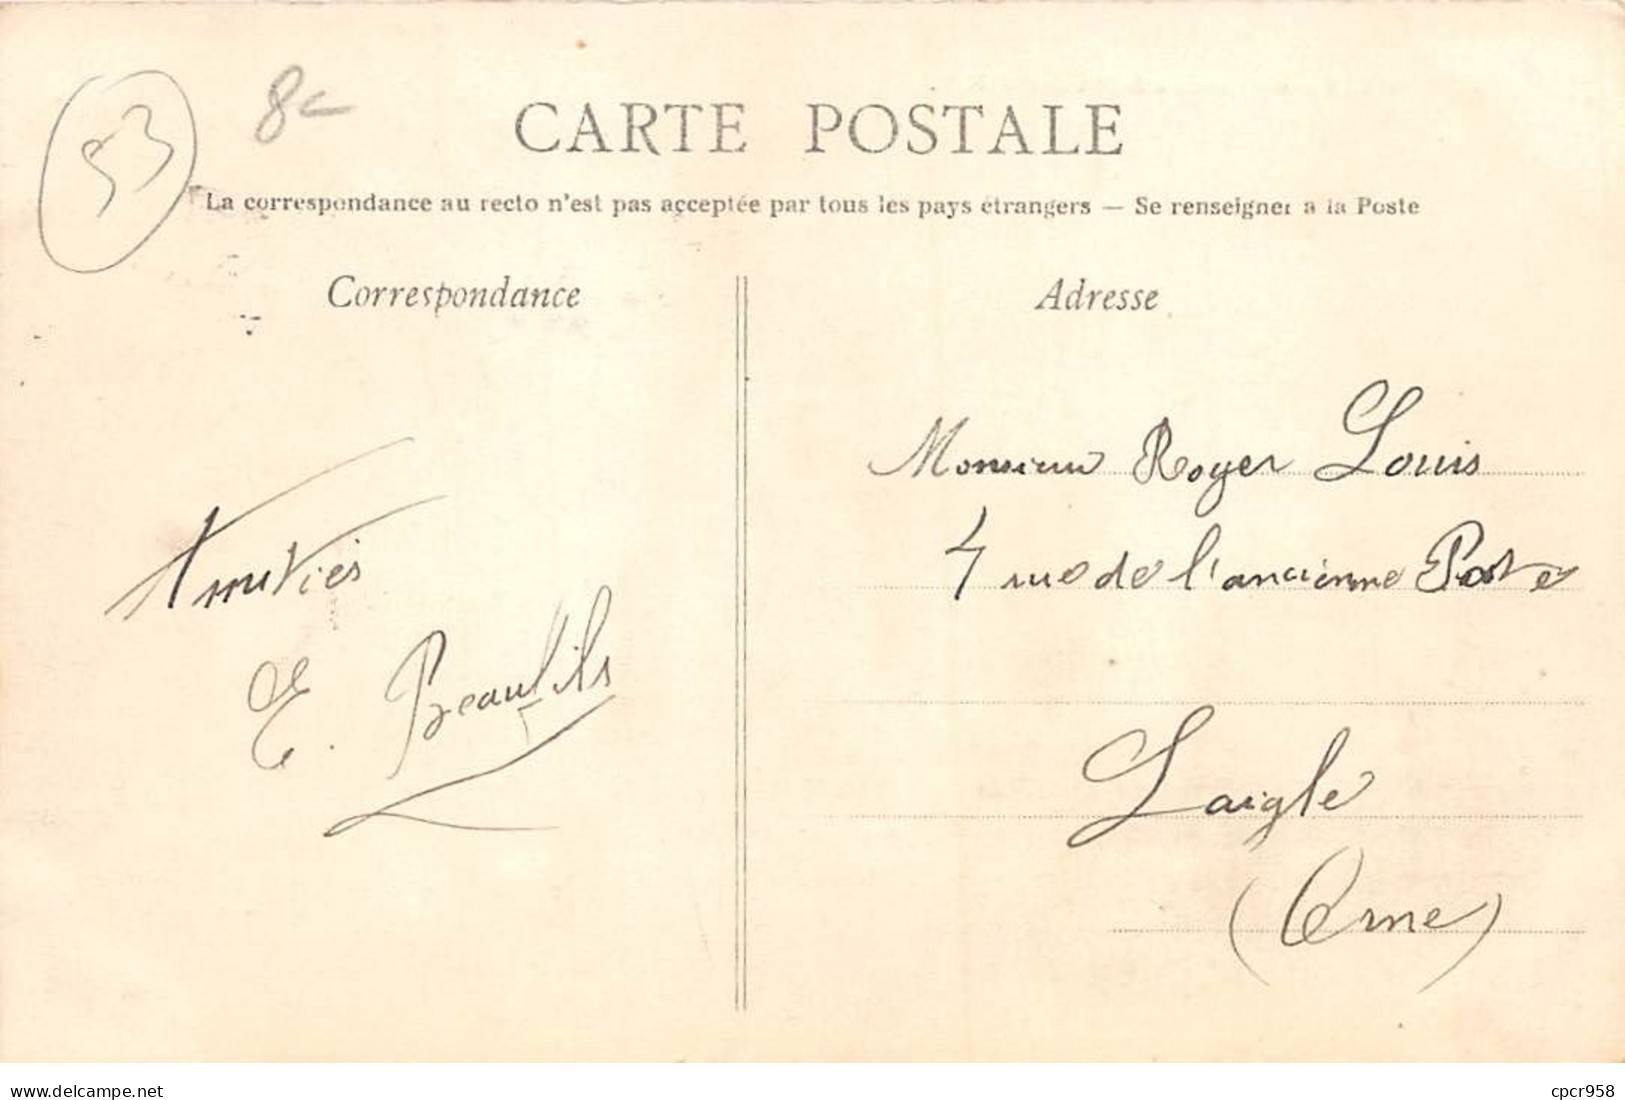 53
8
CARTE POSTALE
La correspondance au recto n'est pas acceptée par tous les pays étrangers — Se renseigner a la Poste
Correspondance
Adresse
Monsieur Roger Louis
4 rue de l'ancienne Poste
Amitiés
E. Beaufils
Laigle
(Orne)
www.delcampe.net
cpcr958